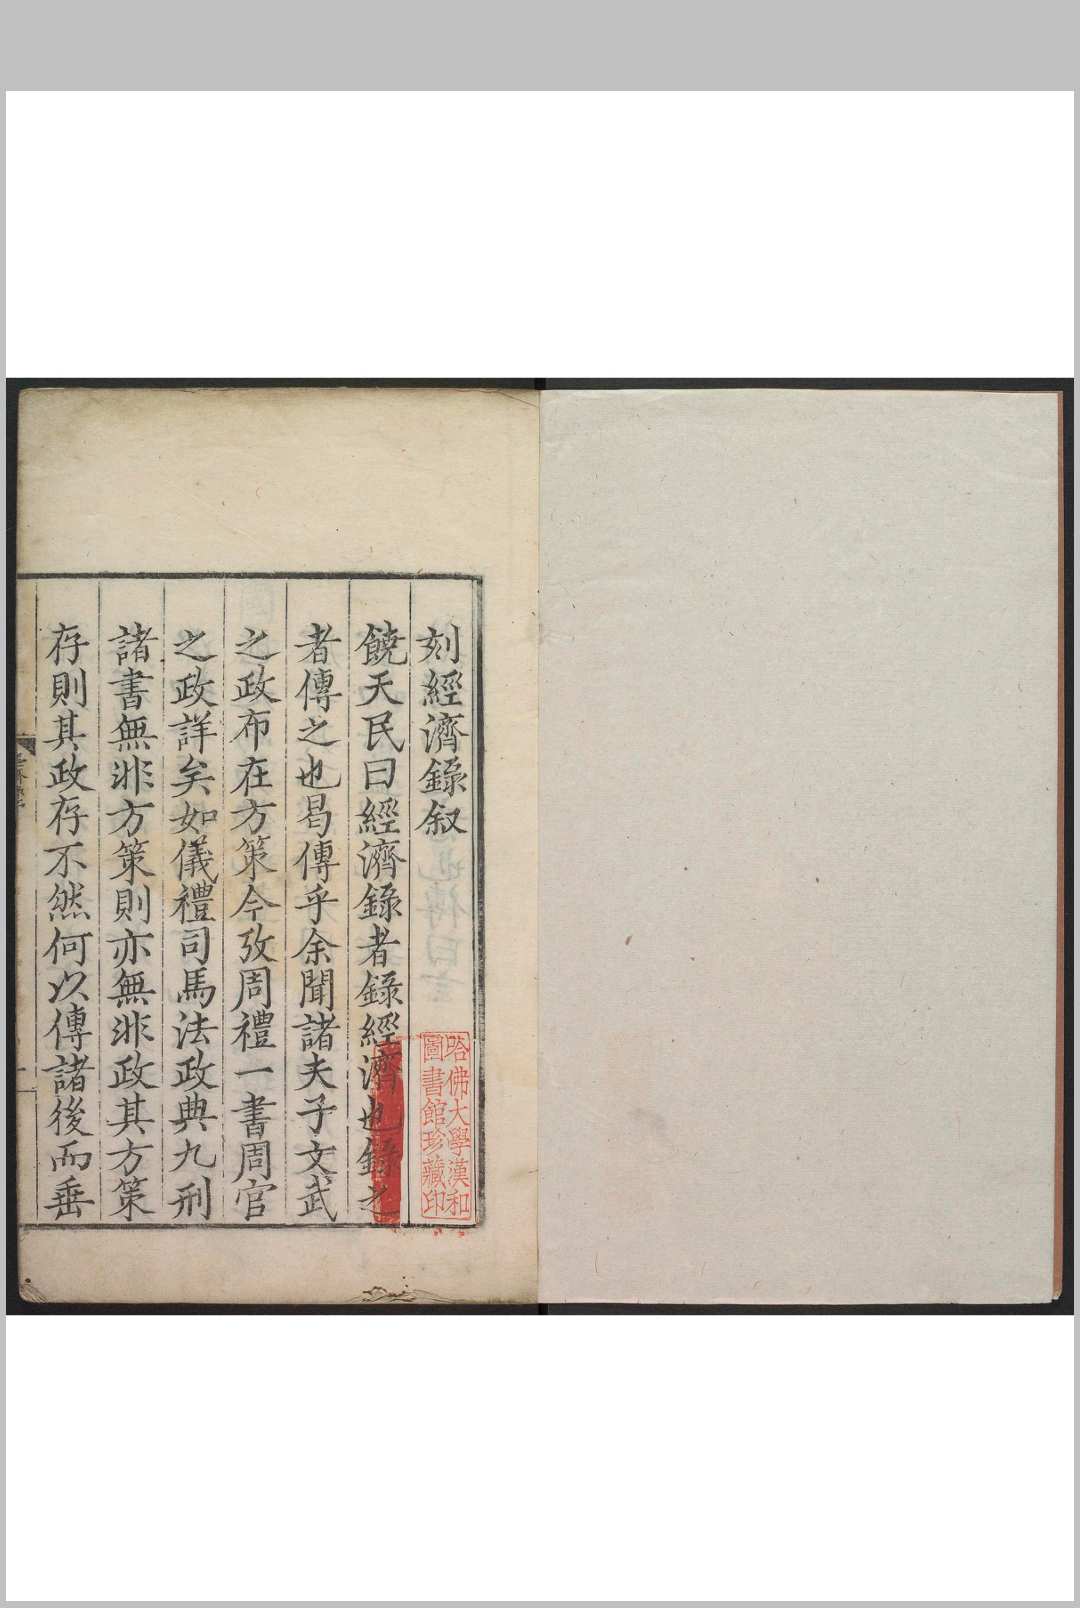 刻經濟錄叙
饒天民曰經濟錄者錄經濟也錄之
者傳之也曷傳乎余聞諸夫子文武
之政布在方策今攷周禮一書周官
之政詳矣如儀禮司馬法政典九刑
諸書無非方策則亦無非政其方策
存則其政存不然何以傳諸後而垂
哈佛大學漢和
圖書館珍藏印